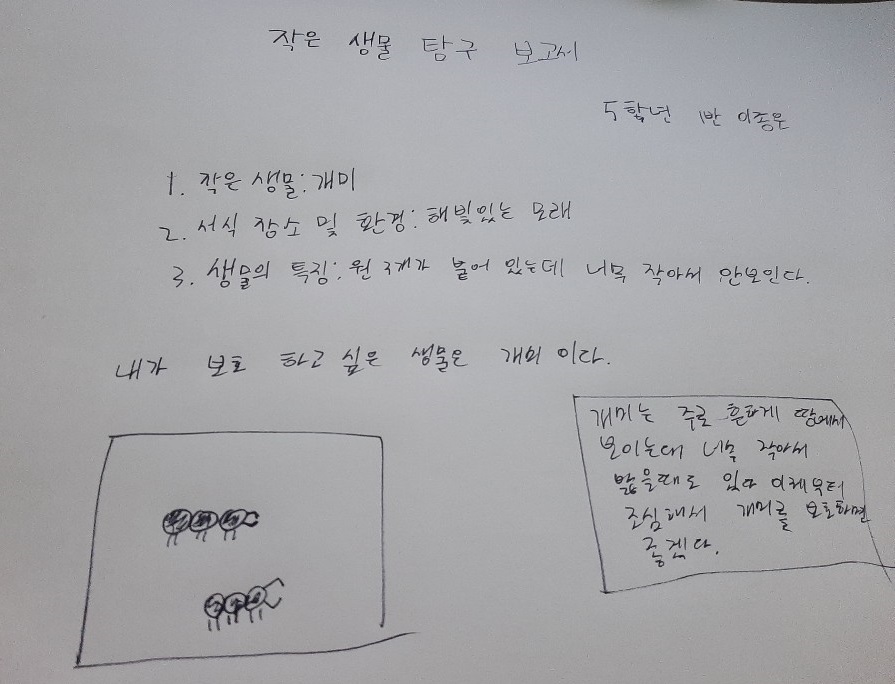 작은 생물 탐구 보고서
5학년 1반 이종운
1. 작은 생물: 개미
2. 서식 장소 및 환경: 해빛있는 모래
3. 생물의 특징: 원 3개가 붙어 있는데 너무 작아서 안보인다.
내가 보호 하고 싶은 생물은 개미 이다.
개미는 주로 흔하게 땅에서
보이는대 너무 작아서
밟을때도 있다 이제부터
조심해서 개미를 보호하면
좋겠다.